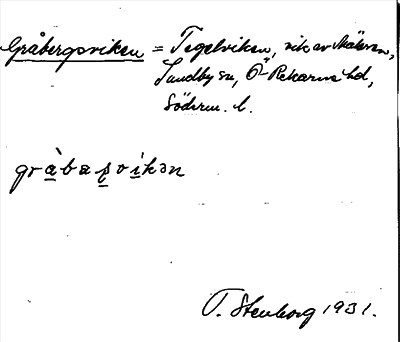 Gråbergsviken = Tegelviken, vik av Mälaren,
Sundby sn, Ö-Rekarne hd,
Söderm. l.
gràbaʂvikən
T. Stenborg 1931.